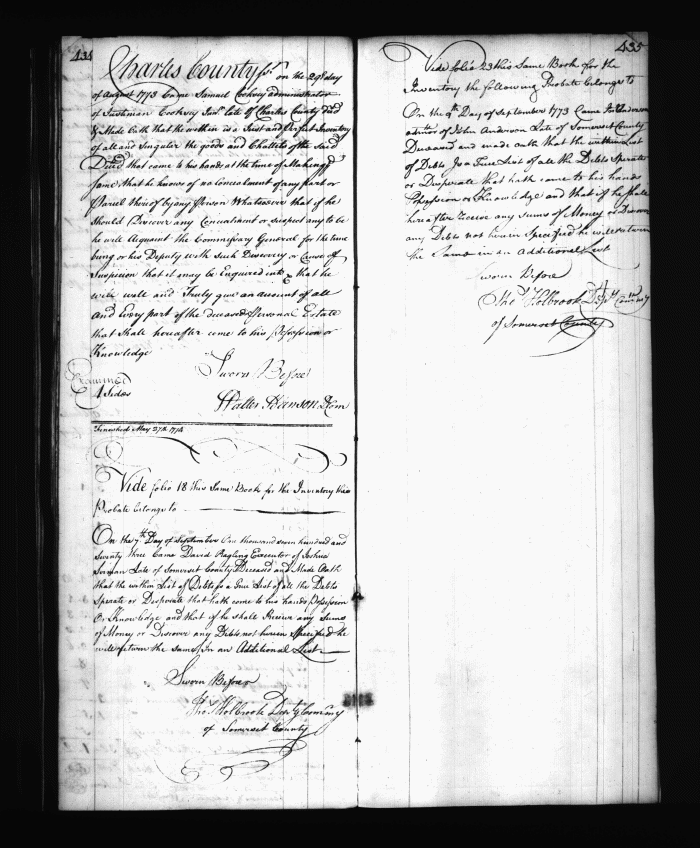 434
Charles County Sst. on the 29th day
of August 1773 Came Samuel Cookrey administrator
of Cookrey late of Charles County Decd
& Made Oath that the within is a Just and Perfect Inventory
of all and Singular the goods and Chattels of the said
Deced that come to his hands at the time of Making
Same that he knows of no Concealment of any part or
Parcel thereof by any Person Whatsoever that if he
Should Discover any Concealment or Suspect any to be
he will Aquaint the Commissary General for the time
being or his Deputy with Such Discovery or Cause of
Suspicion that it may be Enquired into & that he
will well and Truly give an account of all
and Every part of the deceased Personal Estate
that Shall hereafter come to his Possession or
Knowledge
Sworn Before
Examined
4 Sides
Walter Hanson DCom
Finished May 27th 1774
Vide folio 18 this Same Book for the Inventory this
Probate belongs to
On the 7th Day of September One thousand seven hundred and
Seventy three Came David Executor of Joshua
late of Somerset County Deceased and Made Oath
that the within List of Debts is a True List of all the Debts
Sperate or Desperate that hath come to his hands Possession
Or Knowledge and that if he shall Receive any Sums
of Money or Discover any Debts not herein Specified he
will return the Same In an Additional List
Sworn Before
Thos Holbrook Depty Comisry
of Somerset County
435
Vide folio 23 this Same Book for the
Inventory the following Probate belongs to
On the 9th Day of September 1773 Came Anderson
of John Anderson Late of Somerset County
Deceased and made oath that the within List
of Debts Is a True List of all the Debts Sperate
or Desperate that hath come to his hands
Possession or Knowledge and that if he shall
hereafter receive any Sums of Money or Discover
any Debts not herein Specified he will return
the Same in an Additional List
Sworn Before
Thos Holbrook
of Somerset County